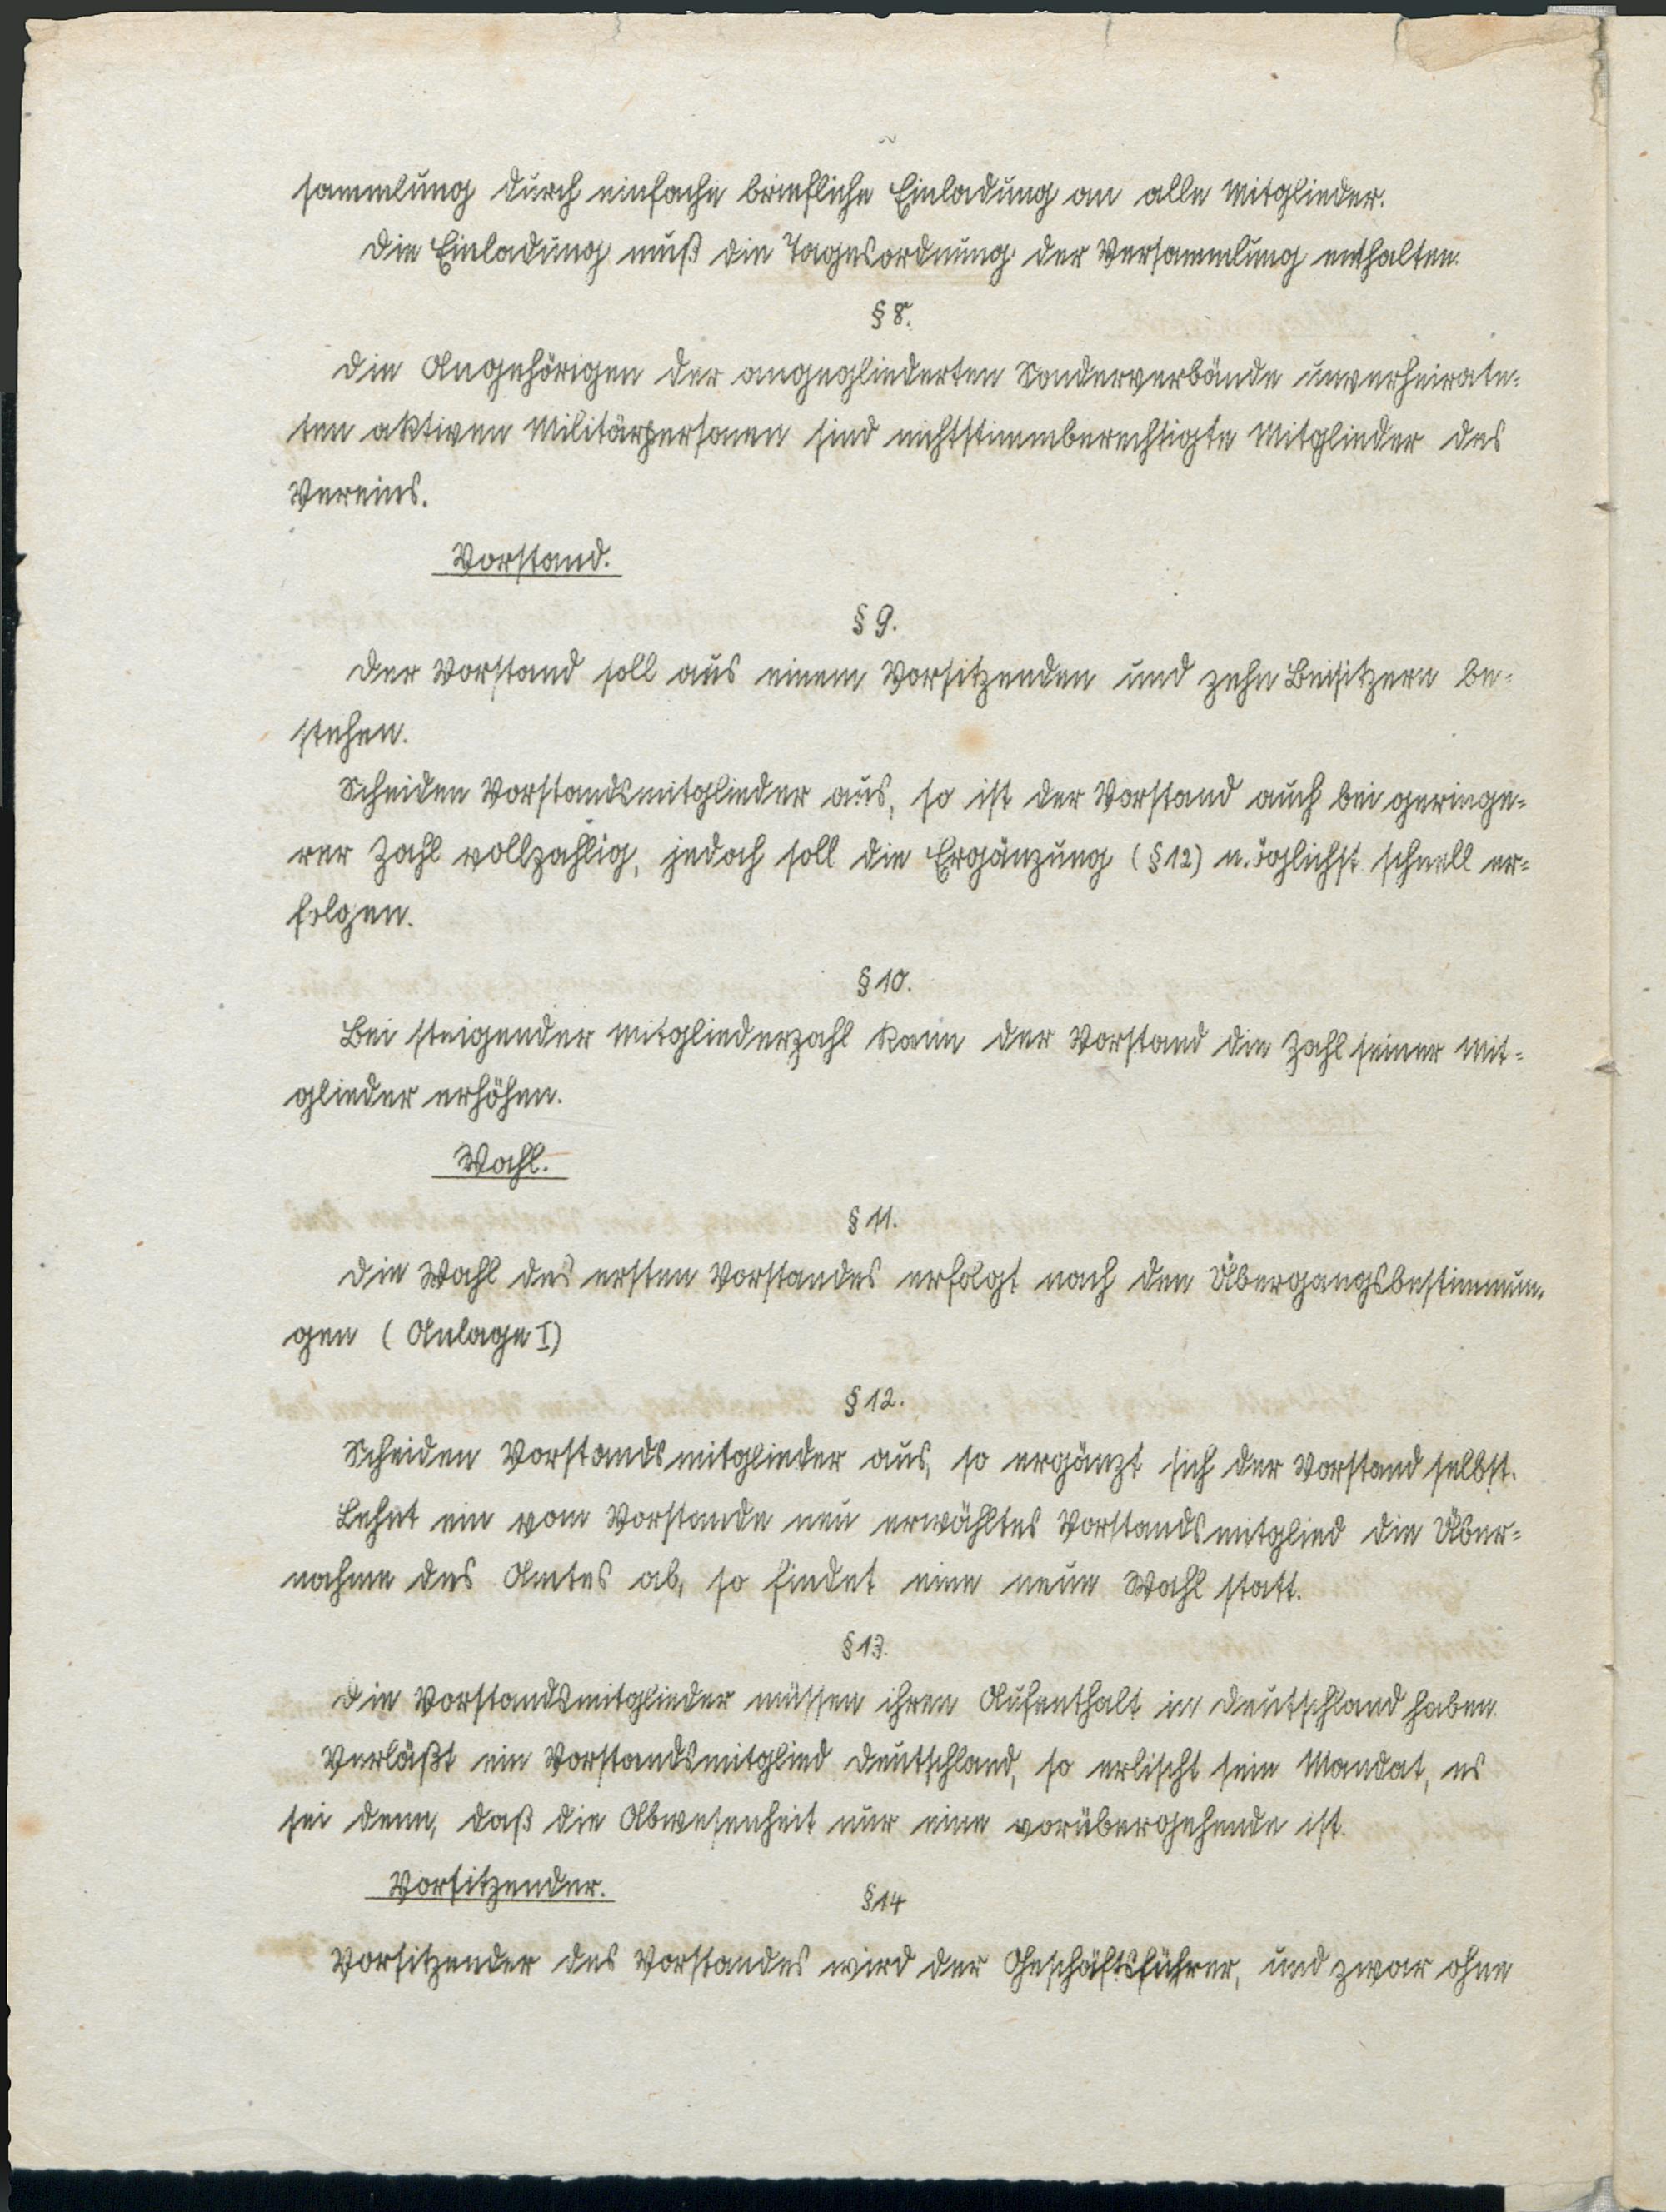 sammlung durch einfache briefliche Einladung an alle Mitglieder.
Die Einladung muß die Tagesordnung der Versammlung enthalten.
§ 8.
Die Angehörigen der angegliederten Sonderverbände unverheirate=
ten aktiven Militärpersonen sind nichtstimmberechtigte Mitglieder des
Vereins.
Vorstand.
§ 9.
Der Vorstand soll aus einem Vorsitzenden und zehn Beisitzern be=
stehen.
Scheiden Vorstandsmitglieder aus, so ist der Vorstand auch bei geringe=
rer Zahl vollzählig, jedoch soll die Ergänzung (§ 12) möglichst schnell er=
folgen.
§ 10.
Bei steigender Mitgliederzahl kann der Vorstand die Zahl seiner Mit=
glieder erhöhen.
Wahl.
§ 11.
Die Wahl des ersten Vorstandes erfolgt nach den Übergangsbestimmun=
gen (Anlage I)
§ 12.
Scheiden Vorstandsmitglieder aus, so ergänzt sich der Vorstand selbst.
Lehnt ein vom Vorstande neu erwähltes Vorstandsmitglied die Über=
nahme des Amtes ab, so findet eine neue Wahl statt.
§ 13.
Die Vorstandsmitglieder müssen ihren Aufenthalt in Deutschland haben.
Verläßt ein Vorstandsmitglied Deutschland, so erlischt sein Mandat, es
sei denn, daß die Abwesenheit nur eine vorübergehende ist.
Vorsitzender.
§ 14
Vorsitzender des Vorstandes wird der Geschäftsführer, und zwar ohne